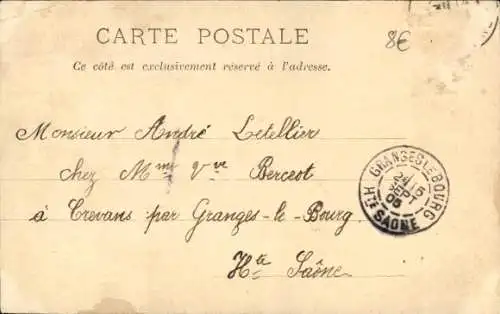 CARTE POSTALE
8€
Ce côté est exclusivement réservé à l'adresse.
Monsieur André Letellier
chez Mme Vve Bercot
à Crevans par Granges-le-Bourg
Hte Saône
GRANGES-LE-BOURG
SEPT
05
HTE SAONE